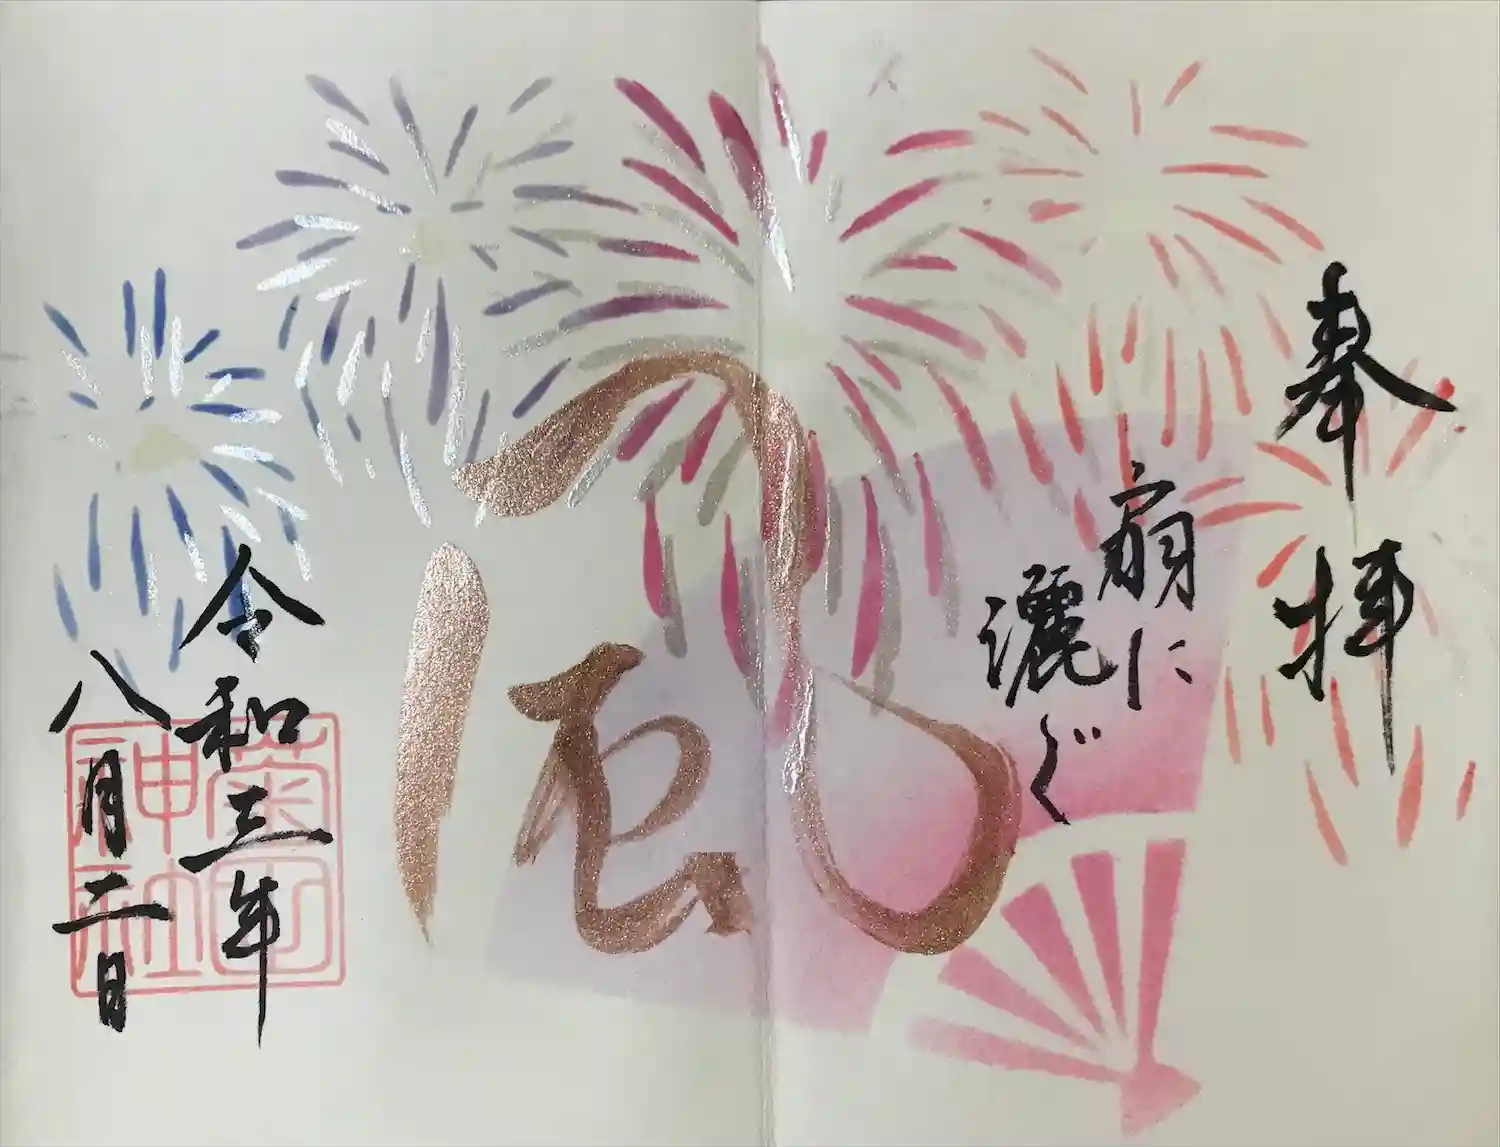 奉拝
扇に
灑ぐ
風
令和三年
八月二日
菊田
神社